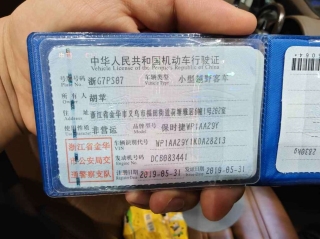 中华人民共和国机动车行驶证
Vehicle License of the People's Republic of China
号牌号码 浙G7P5B7 车辆类型 小型越野客车
所有人 胡苹
住址 浙江省金华市义乌市福田街道荷塘雅居
使用性质 非营运 品牌型号 保时捷WP1AA29Y
浙江省金华
市公安局交
通警察支队
车辆识别代号 WP1AA29Y1KDA28213
发动机号码 DCB083441
注册日期 2019-05-31 发证日期 2019-05-31